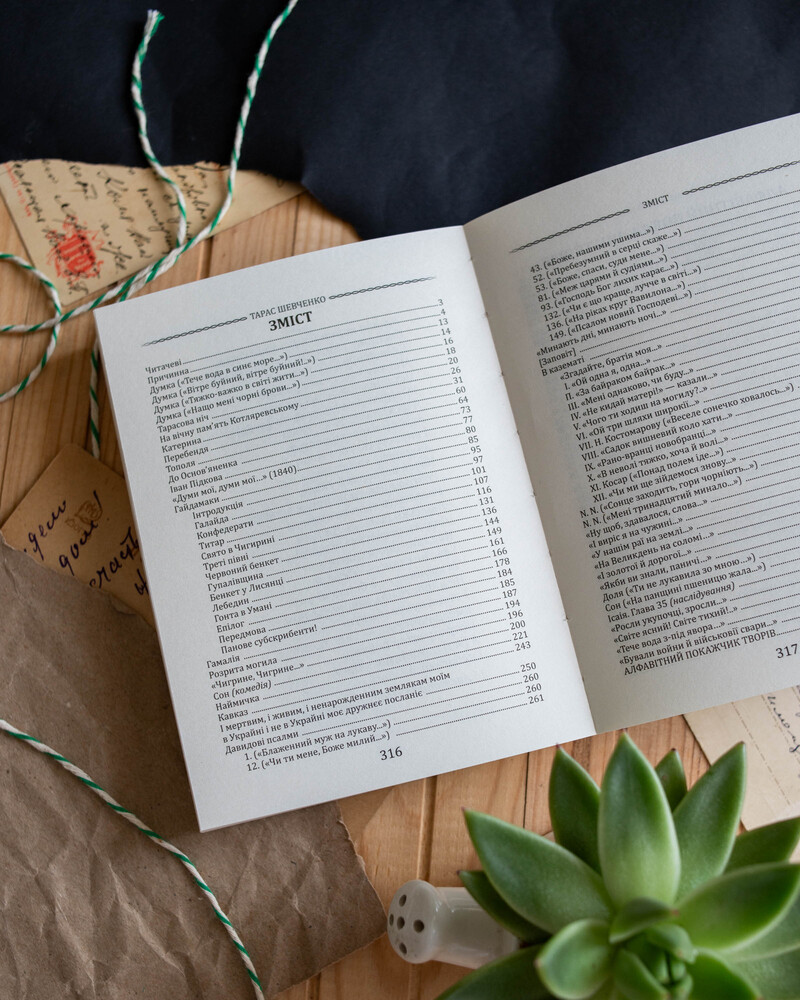 ТАРАС ШЕВЧЕНКО
ЗМІСТ
Читачеві 3
Причинна 4
Думка («Тече вода в синє море...») 13
Думка («Вітре буйний, вітре буйний!..») 14
Думка («Тяжко-важко в світі жити...») 16
Думка («Нащо мені чорні брови...») 18
Тарасова ніч 20
На вічну пам'ять Котляревському 26
Катерина 31
Перебендя 60
Тополя 64
До Основ'яненка 73
Іван Підкова 77
«Думи мої, думи мої...» (1840) 80
Гайдамаки 85
Інтродукція 95
Галайда 97
Конфедерати 101
Титар 107
Свято в Чигирині 116
Треті півні 131
Червоний бенкет 136
Гупалівщина 144
Бенкет у Лисянці 149
Лебедин 161
Гонта в Умані 166
Епілог 178
Передмова 184
Панове субскрибенти! 185
Гамалія 187
Розрита могила 194
«Чигрине, Чигрине...» 196
Сон (комедія) 200
Наймичка 221
Кавказ 243
І мертвим, і живим, і ненарожденним землякам моїм
в Україні і не в Україні моє дружнєє посланіє 250
Давидові псалми 260
1. («Блаженний муж на лукаву...») 260
12. («Чи ти мене, Боже милий...») 261
316
ЗМІСТ
43. («Боже, нашими ушима...»)
52. («Пребезумний в серці скаже...»)
53. («Боже, спаси, суди мене...»)
81. («Меж царями й судіями...»)
93. («Господь Бог лихих карає...»)
132. («Чи є що краще, лучче в світі...»)
136. («На ріках круг Вавилона...»)
149. («Псалом новий Господеві...»)
«Минають дні, минають ночі...»
[Заповіт]
В казематі
«Згадайте, братія моя...»
I. «Ой одна я, одна...»
II. «За байраком байрак...»
III. «Мені однаково, чи буду...»
IV. «Не кидай матері!» — казали...»
V. «Чого ти ходиш на могилу?..»
VI. «Ой три шляхи широкії...»
VII. Н. Костомарову («Веселе сонечко ховалось...»)
VIII. «Садок вишневий коло хати...»
IX. «Рано-вранці новобранці...»
X. «В неволі тяжко, хоча й волі...»
XI. Косар («Понад полем іде...»)
XII. «Чи ми ще зійдемося знову...»
N. N. («Сонце заходить, гори чорніють...»)
N. N. («Мені тринадцятий минало...»)
«Ну щоб, здавалося, слова...»
«І виріс я на чужині...»
«У нашім раї на землі...»
«На Великдень на соломі...»
«І золотої й дорогої...»
«Якби ви знали, паничі...»
Доля («Ти не лукавила зо мною...»)
Сон («На панщині пшеницю жала...»)
Ісаія. Глава 35 (наслідування)
«Росли укупочці, зросли...»
«Світе ясний! Світе тихий!..»
«Тече вода з-під явора...»
«Бували войни й військовії свари...»
АЛФАВІТНИЙ ПОКАЖЧИК ТВОРІВ
317